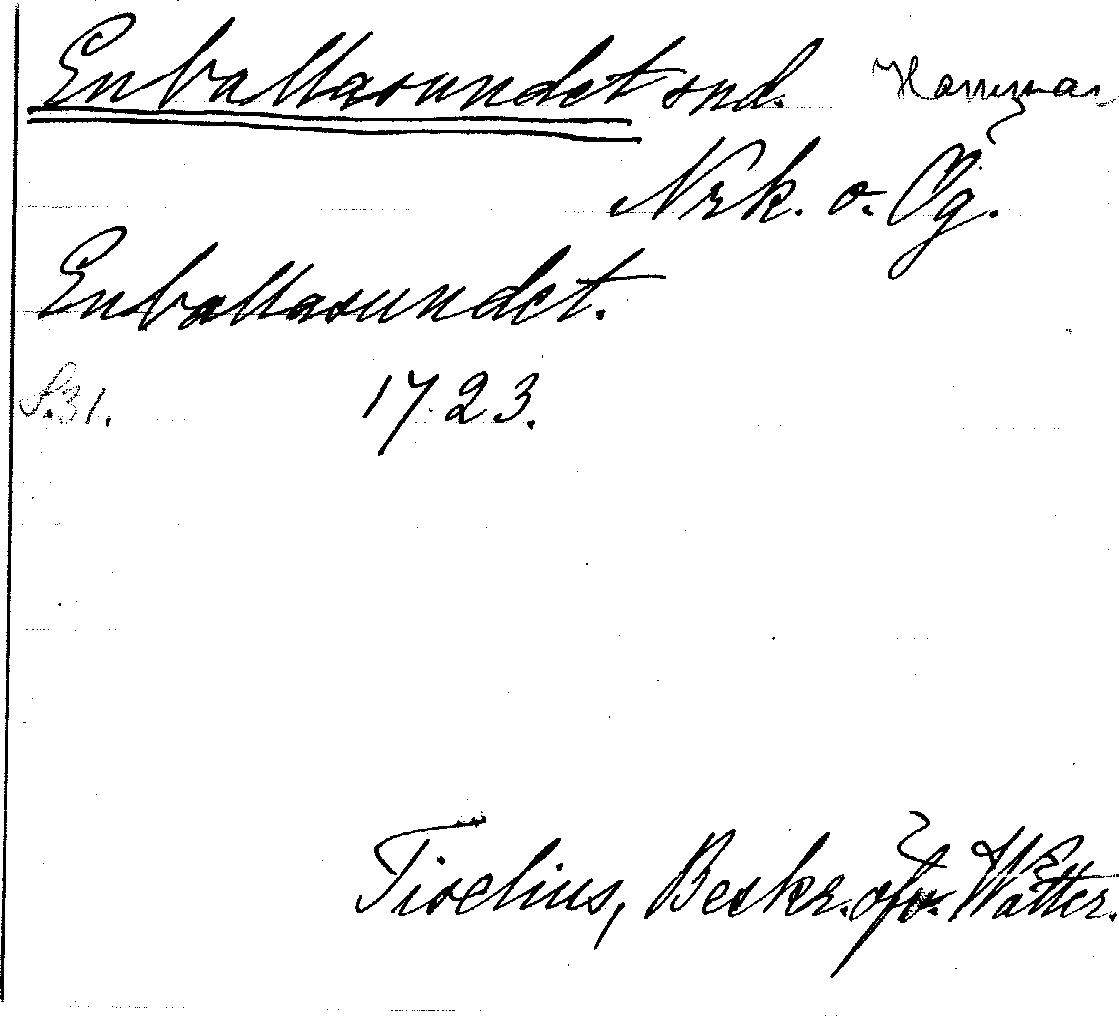 Enballasundet snd. Hammar
Nrk. o. Ög.
Enballasundet.
S.31. 1723.
Tiselius, Beskr. öfv. Wätter.